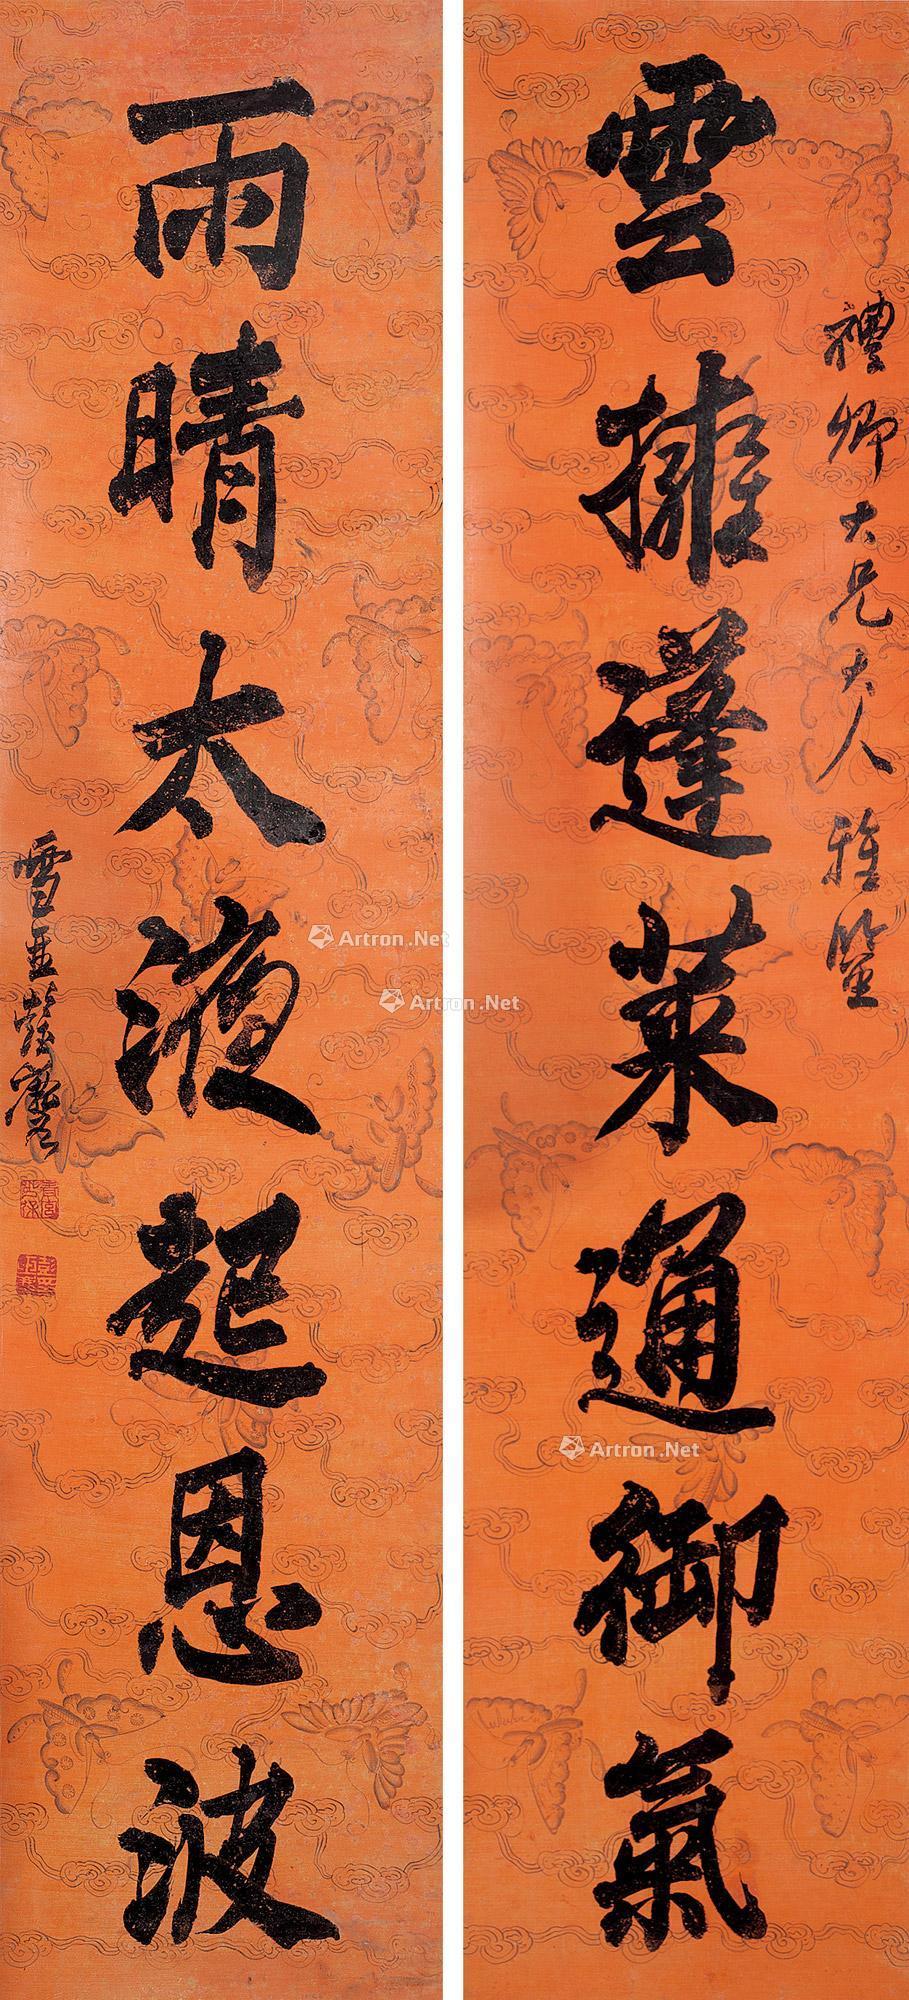 禮卿大兄大人雅鑒
雲擁蓬萊通御氣
雨晴太液起恩波
雪琴彭玉麐
Artron.Net
Artron.Net
Artron.Net